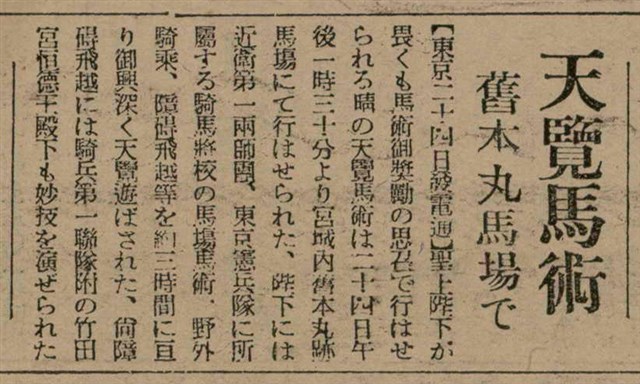 天覽馬術
舊本丸馬場で
【東京二十四日發電通】聖上陛下が
畏くも馬術御奬勵の思召で行はせ
られる晴の天覽馬術は二十四日午
後一時三十分より宮城内舊本丸跡
馬場にて行はせられた、陛下には
近衞第一兩師團、東京憲兵隊に所
屬する騎馬將校の馬塲馬術、野外
騎乘、障碍飛越等を約三時間に亘
り御興深く天覽遊ばされた、尙障
碍飛越には騎兵第一聯隊附の竹田
宮恒德王殿下も妙技を演ぜられた